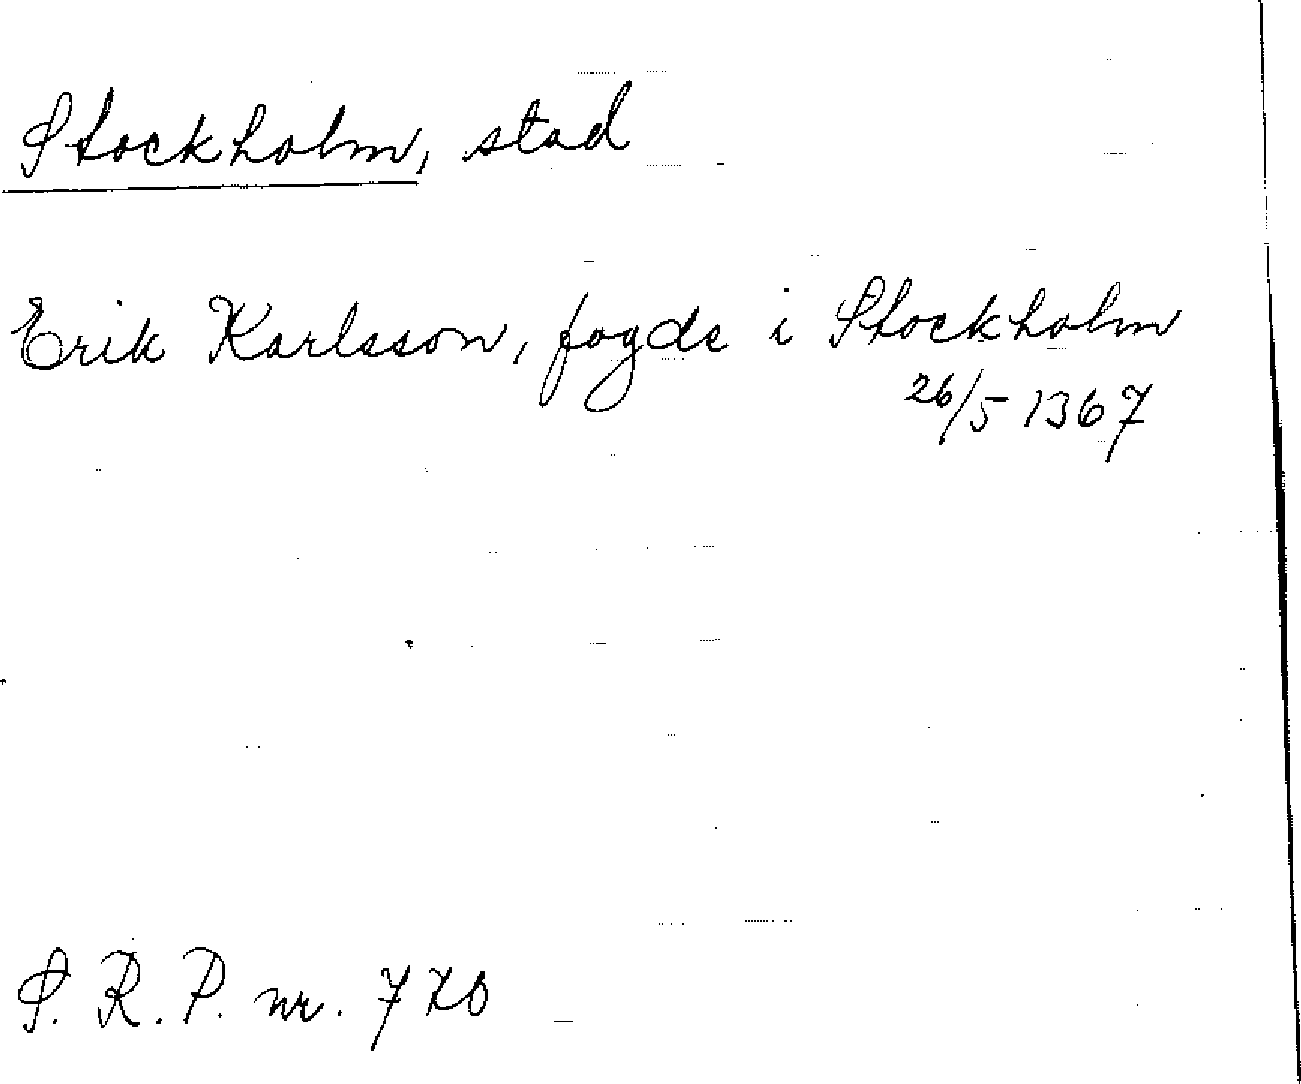 Stockholm, stad
Erik Karlsson, fogde i Stockholm
26/5 1367
S. R. P. nr.